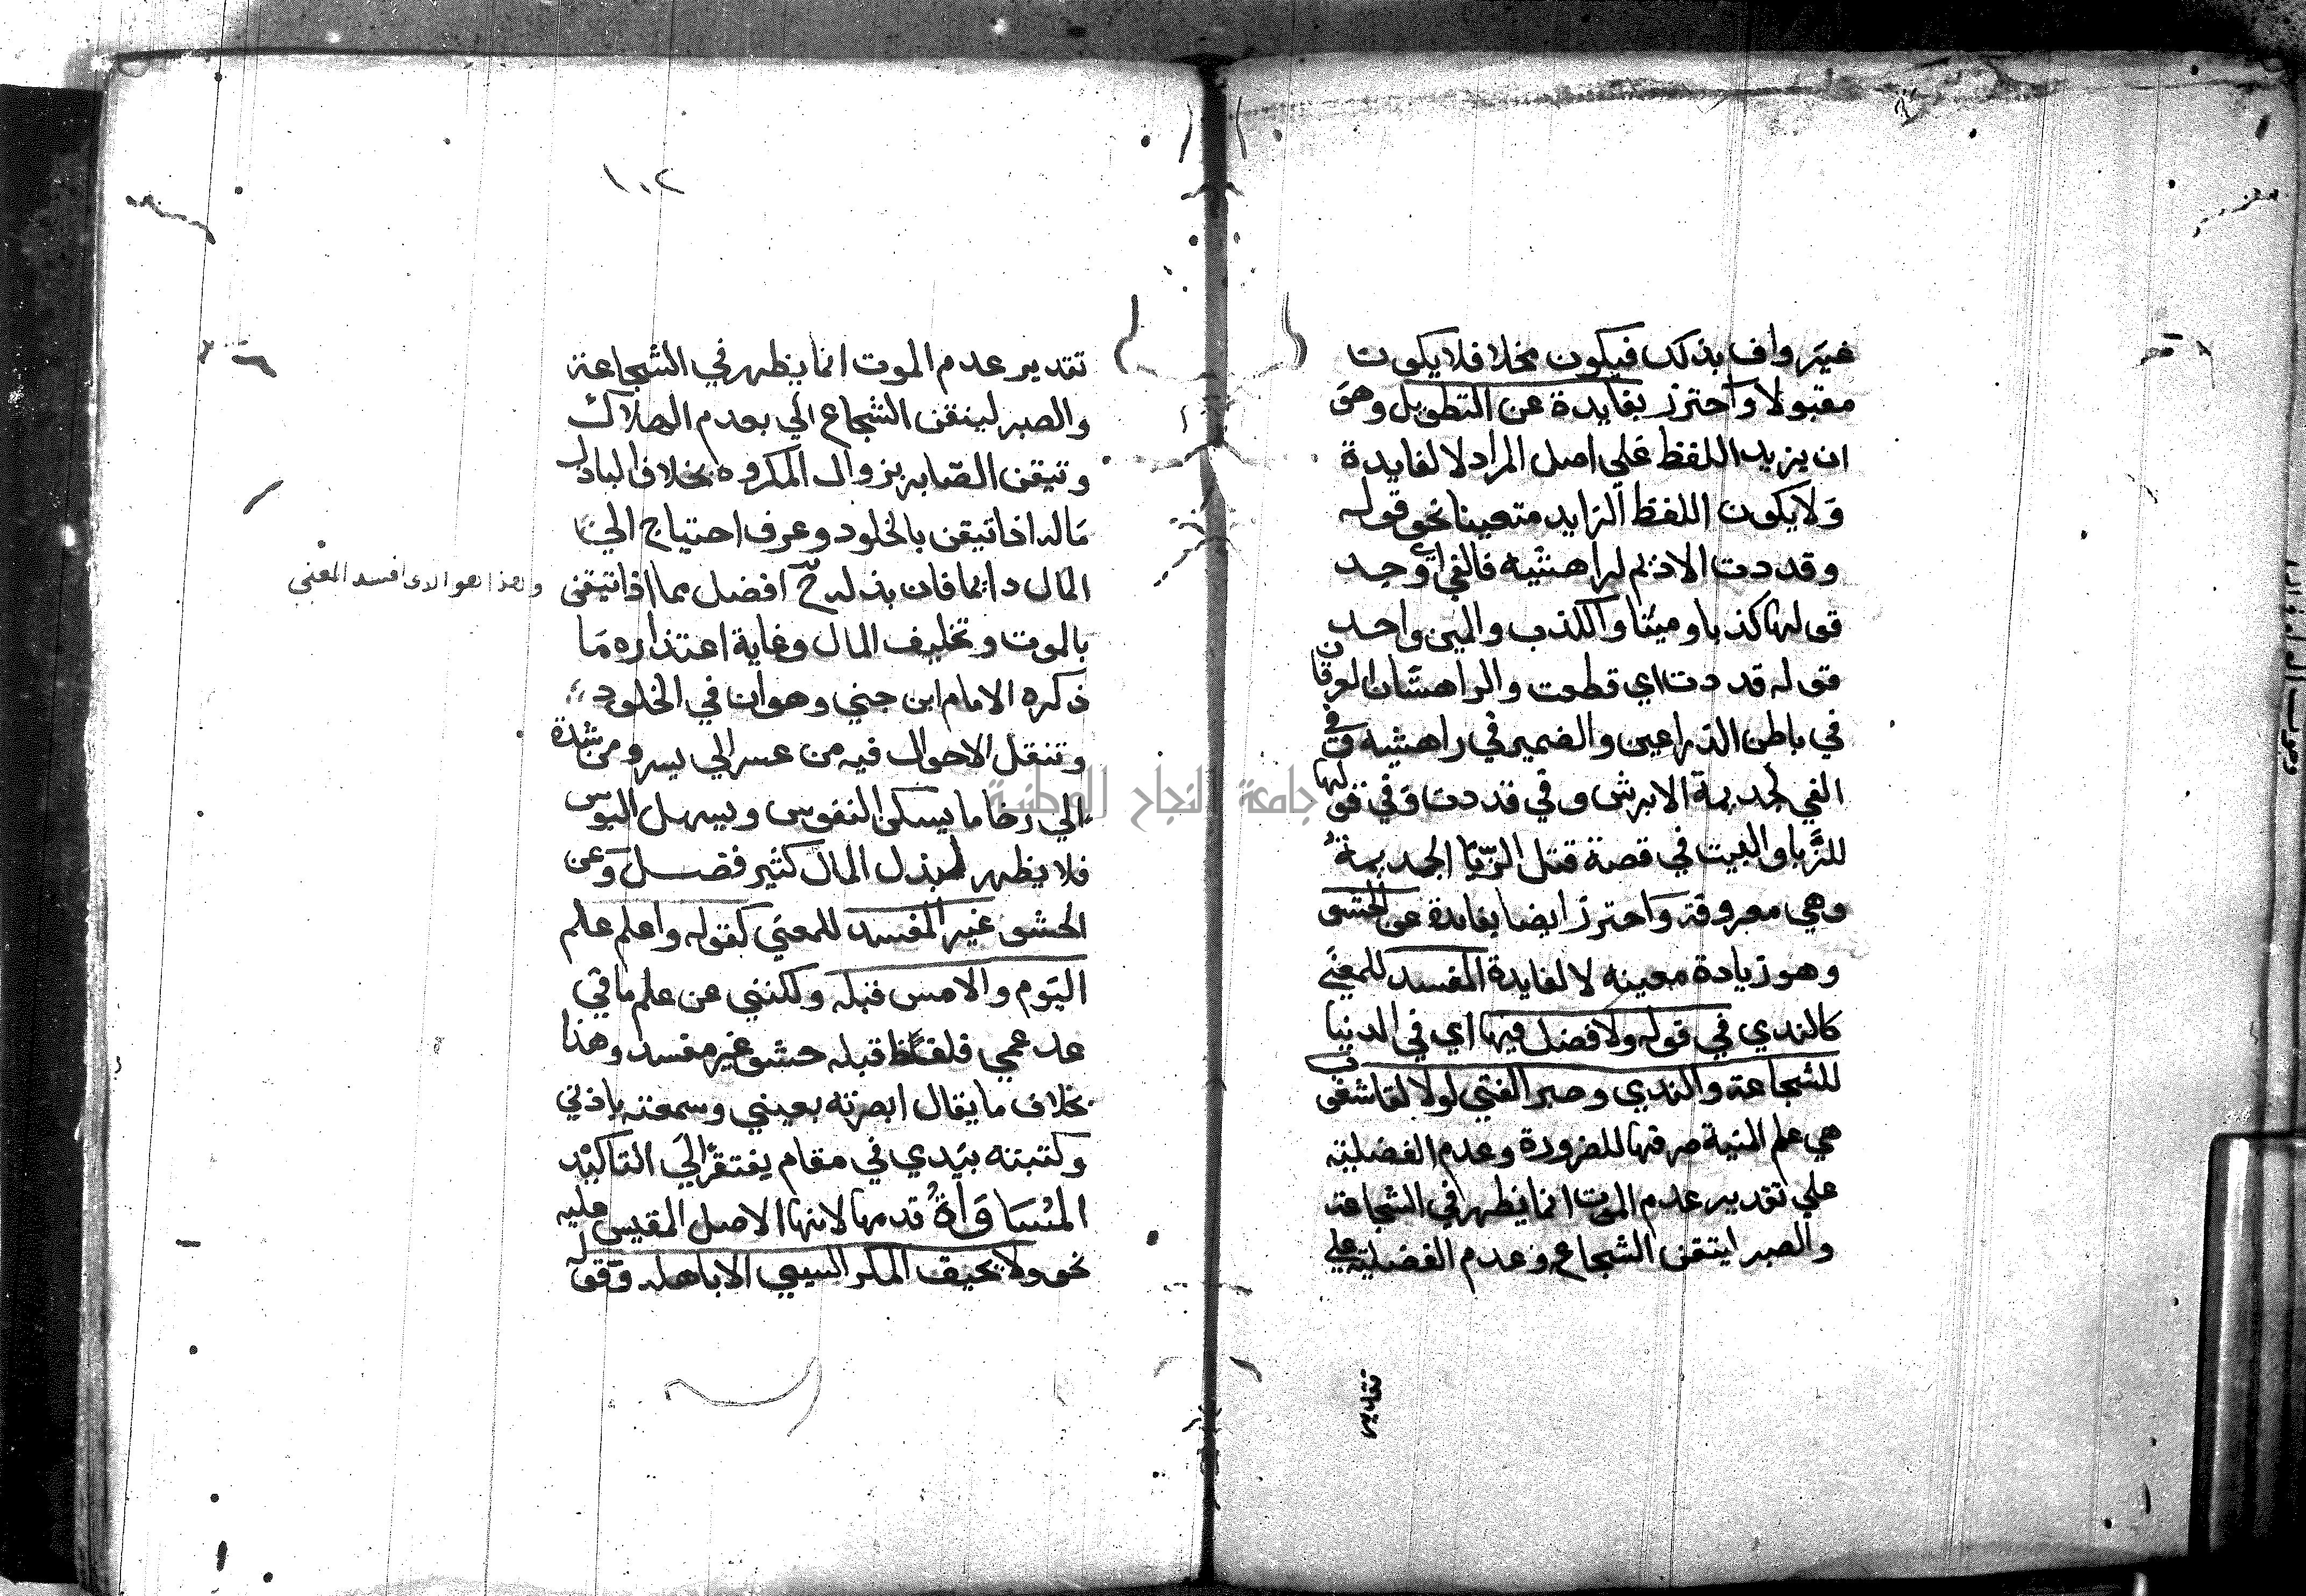 غير واف بذلك فيكون مخلا فلا يكون
مقبولا واحترز بفايدة عن التطويل وهو
ان يزيد اللفظ علي اصل المراد لا لفايدة
ولا يكون اللفظ الزايد متعينا نحو قوله
وقددت الاديم لراهشيه فالفي اي وجد
قولها كذبا ومينا والكذب والمين واحد
قوله قددت اي قطعت والراهشان العرقان
في باطن الذراعين والضمير في راهشيه وفي
الفي لجديمة الابرش وفي قددت وفي قولها
للزبا والبيت في قصة قتل الزبا الجديمة
وهي معروفة واحترز ايضا بفايدة عن الحشو
وهو زيادة معينه لا لفايدة المفسد للمعني
كالندي في قوله ولا فضل فيها اي في الدنيا
للشجاعة والندي وصبر الفتي لولا لقا شعوب
هي علم المنية صرفها للضرورة وعدم الفضيلة
علي تقدير عدم الموت انما يظهر في الشجاعة
والصبر ليتقن الشجاع وعدم الفضيلة علي
تقدير
١٠٢
تقدير عدم الموت انما يظهر في الشجاعة
والصبر ليتقن الشجاع الي بعدم الهلاك
وتيقن الصابر بزوال المكروه بخلاف الباذل
ماله اذا تيقن بالخلود وعرف احتياج الي
المال دايما فان بذله ح افضل مما اذا تيقن
ولهذا هو الذى افسد المعني
بالموت وتخليف المال وغاية اعتذاره ما
ذكره الامام ابن جني وهو ان في الخلود
وتنقل الاحوال فيه من عسر الي يسر ومن شدة
الي رخا ما يسكن النفوس ويسهل البوس
فلا يظهر لبذل المال كثير فضل وعن
الحشو غير المفسد للمعني كقوله واعلم علم
اليوم والامس قبله ولكنني عن علم ما في
غد عمي فلفظ قبله حشو غير مفسد وهذا
بخلاف ما يقال ابصرته بعيني وسمعته باذني
وكتبته بيدي في مقام يفتقر الي التاكيد
المساواة قدمها لانها الاصل المقيس عليه
نحو ولا يحيق المكر السيي الا باهله وقوله
جامعة النجاح الوطنية